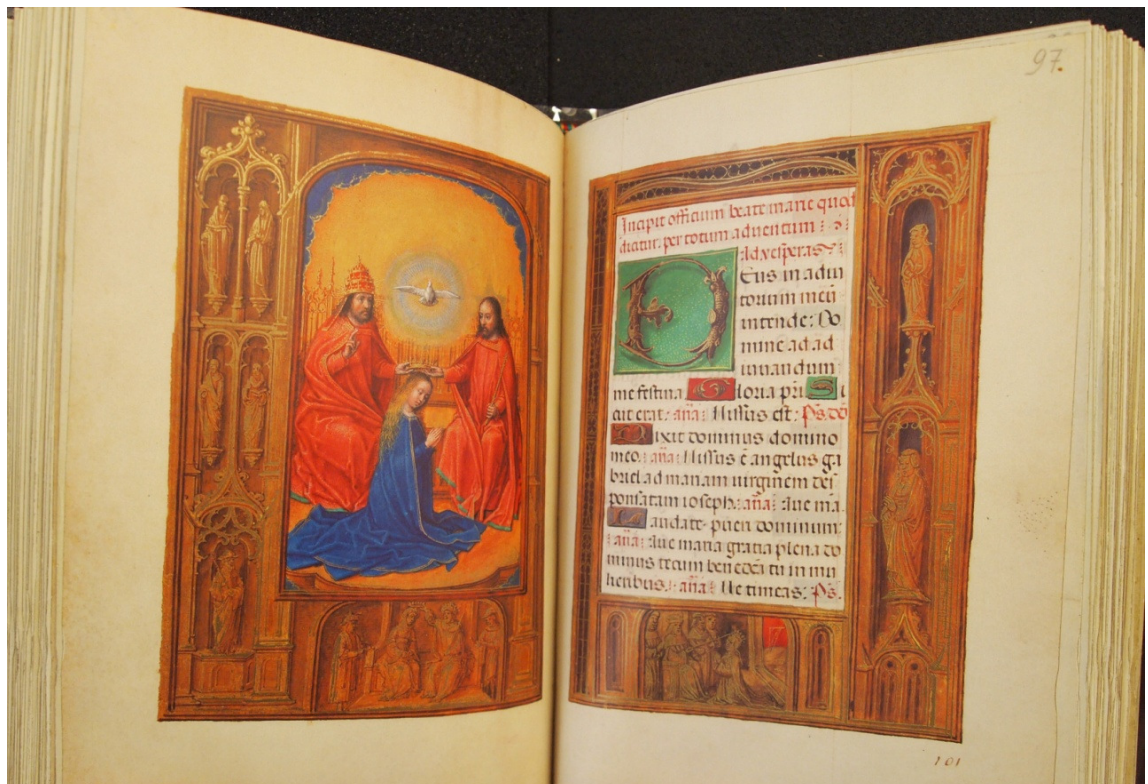 97.
Incipit officium beate marie quod
dicitur per totum adventum :
ad vesperas
Eus in adiu
torium meū
intende: Do
mine ad ad
iuuandum
me festina Gloria pr̄i Si
cut erat: an̄a: Missus est: Ps. do
Dixit dominus domino
meo. an̄a: Missus ē angelus ga
briel ad mariam uirginem des
ponsatam ioseph: an̄a: Aue ma.
Laudate pueri dominum:
an̄a: Aue maria gratia plena do
minus tecum benedc̄a tu in mu
lieribus: an̄a: Ne timeas: Ps.
101